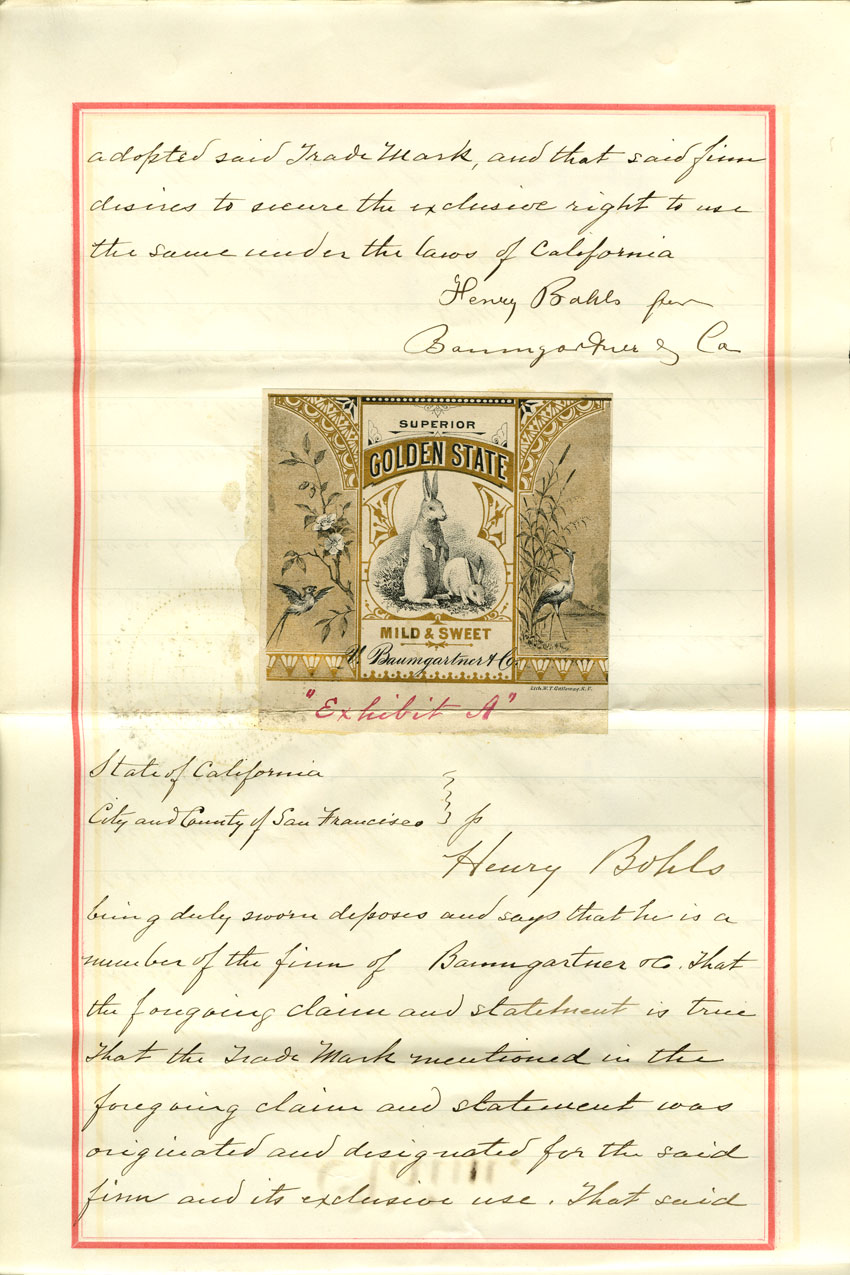 adopted said Trade Mark, and that said firm
desires to secure the exclusive right to use
the same under the laws of California
Henry Bohls for
Baumgartner & Co
SUPERIOR
GOLDEN STATE
MILD & SWEET
Baumgartner & Co.
Lith. W. T. Galloway, S. F.
"Exhibit A"
State of California
City and County of San Francisco } ss
Henry Bohls
being duly sworn deposes and says that he is a
member of the firm of Baumgartner & Co. That
the foregoing claim and statement is true
That the Trade Mark mentioned in the
foregoing claim and statement was
originated and designated for the said
firm and its exclusive use. That said